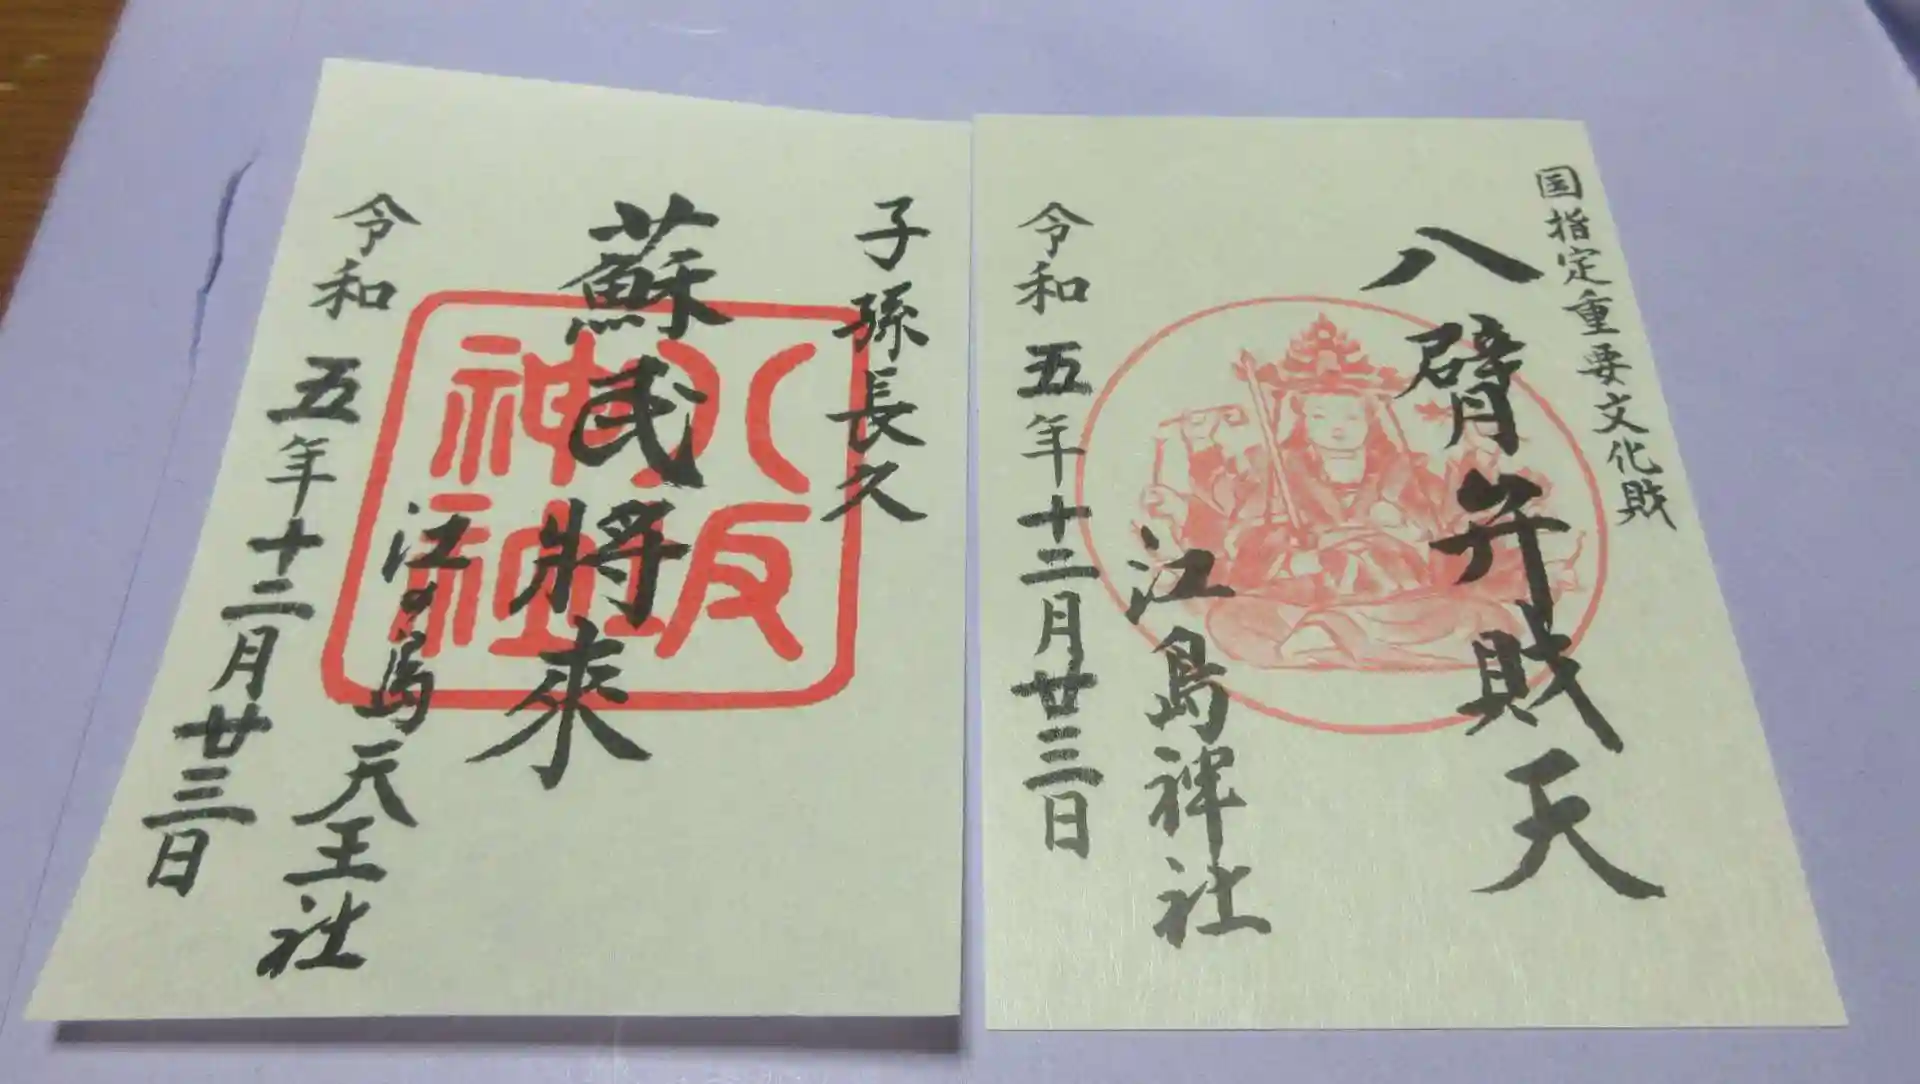 国指定重要文化財
八臂弁財天
江島神社
令和五年十二月廿三日
子孫長久
蘇民將來
八坂
神社
江の島天王社
令和五年十二月廿三日